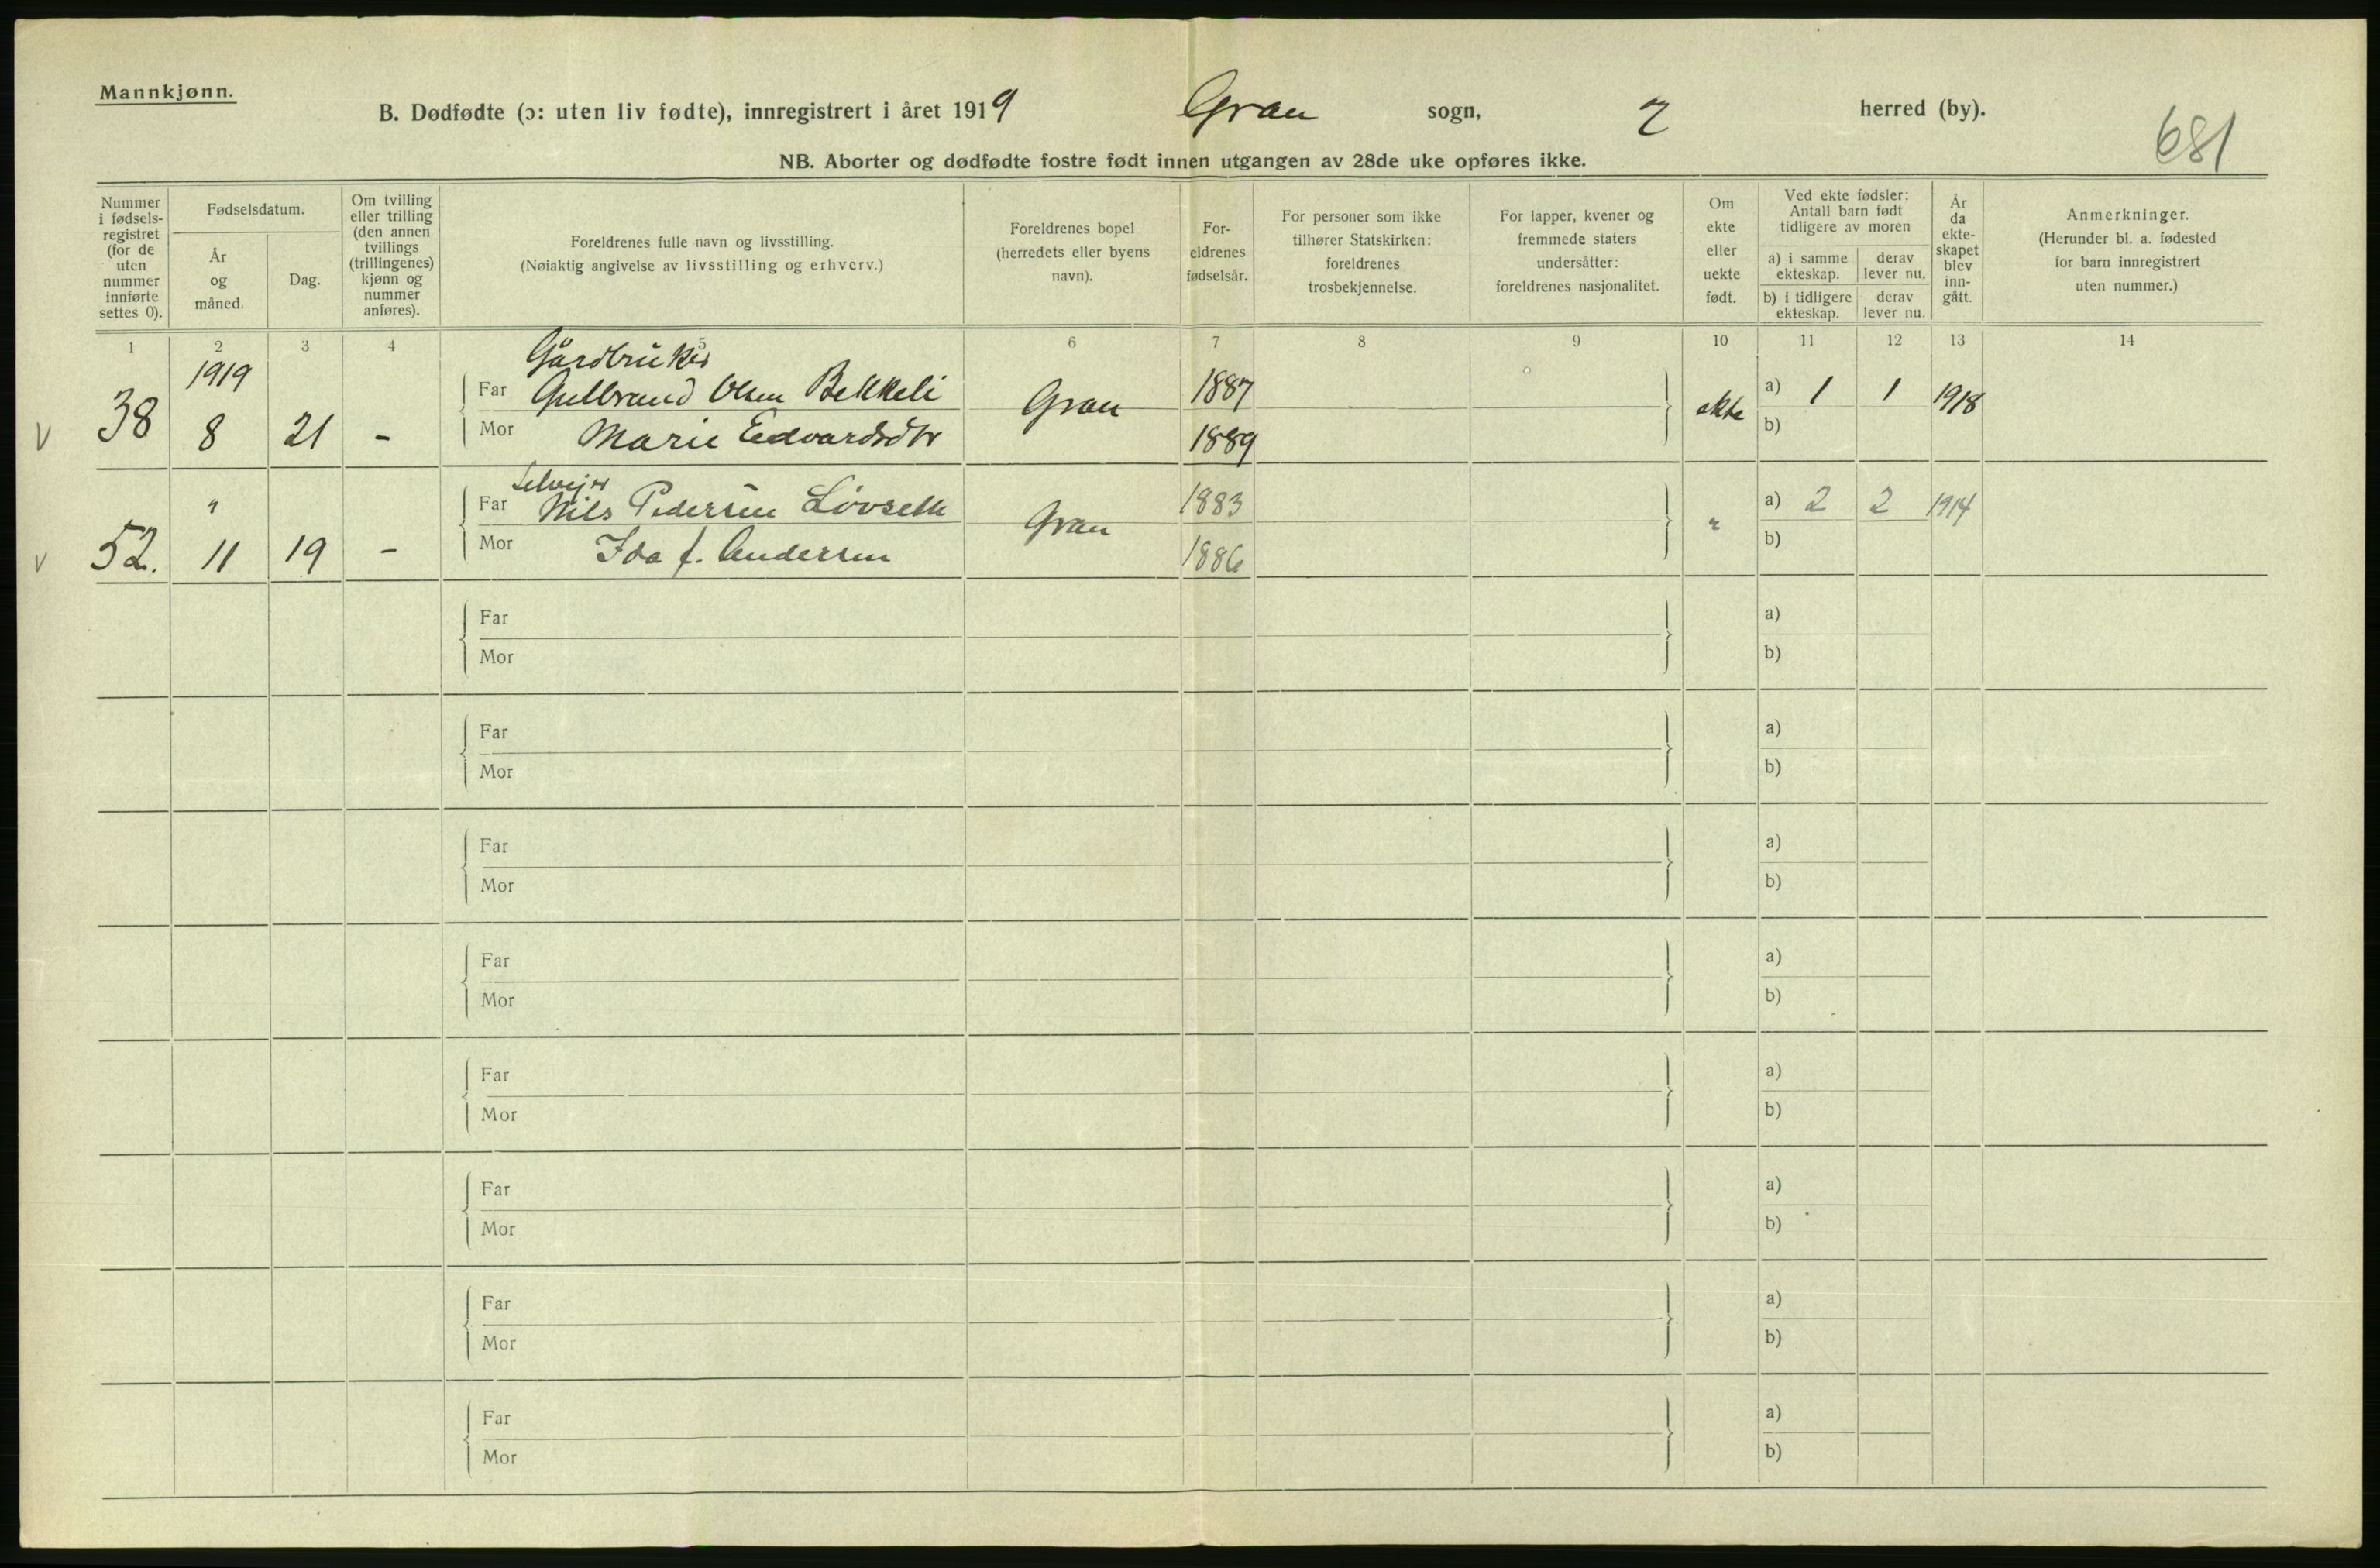 Mannkjønn.
B. Dødfødte (ɔ: uten liv fødte), innregistrert i året 1919 Gran sogn, " herred (by).
681
NB. Aborter og dødfødte fostre født innen utgangen av 28de uke opføres ikke.
Nummer i fødsels-registret (for de uten nummer innførte settes 0).
Fødselsdatum.
År og måned.
Dag.
Om tvilling eller trilling (den annen tvillings (trillingenes) kjønn og nummer anføres).
Foreldrenes fulle navn og livsstilling.
(Nøiaktig angivelse av livsstilling og erhverv.)
Foreldrenes bopel (herredets eller byens navn).
For-eldrenes fødselsår.
For personer som ikke tilhører Statskirken: foreldrenes trosbekjennelse.
For lapper, kvener og fremmede staters undersåtter: foreldrenes nasjonalitet.
Om ekte eller uekte født.
Ved ekte fødsler: Antall barn født tidligere av moren
a) i samme ekteskap.
derav lever nu.
b) i tidligere ekteskap.
derav lever nu.
År da ekte-skapet blev inn-gått.
Anmerkninger.
(Herunder bl. a. fødested for barn innregistrert uten nummer.)
1 2 3 4 5 6 7 8 9 10 11 12 13 14
1919 Gårdbruker
Far Gulbrand Olsen Bekkeli Gran 1887 ekte a) 1 1 1918
V 38 8 21 - Mor Marie Edvardsdtr 1889 b)
Selvejer
" Far Nils Pedersen Lövseth Gran 1883 " a) 2 2 1914
V 52. 11 19 - Mor Ida f. Andersen 1886 b)
Far a)
Mor b)
Far a)
Mor b)
Far a)
Mor b)
Far a)
Mor b)
Far a)
Mor b)
Far a)
Mor b)
Far a)
Mor b)
Far a)
Mor b)